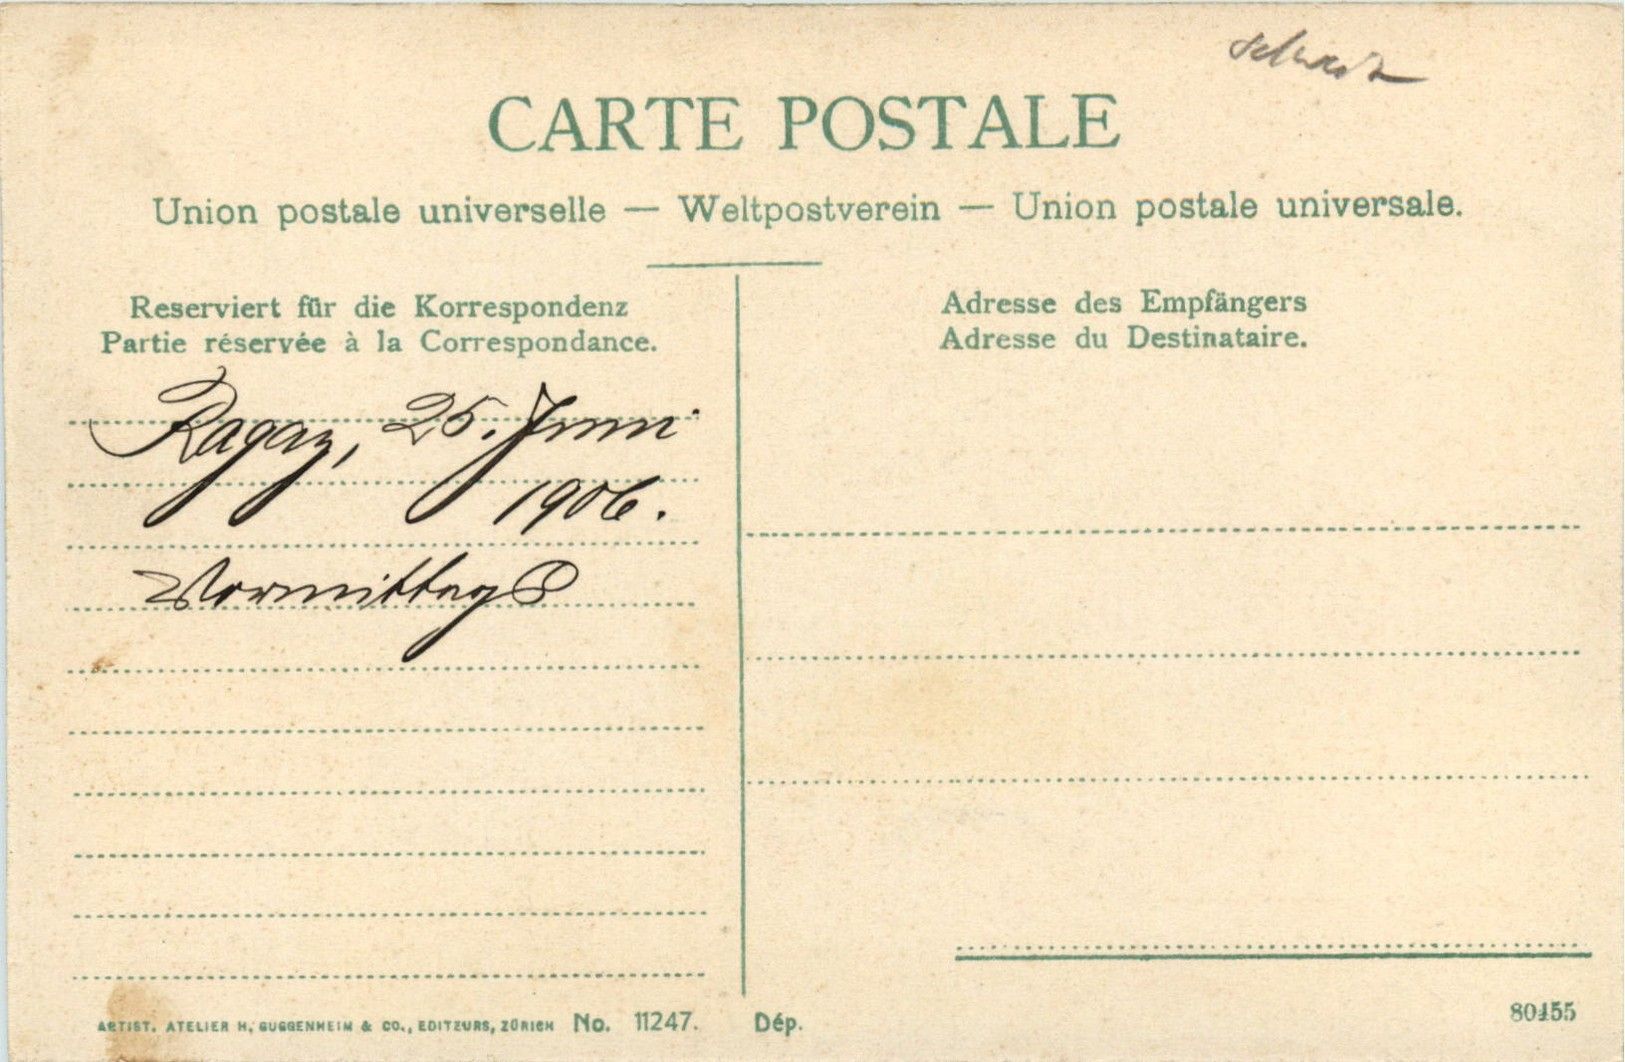 Schweiz
CARTE POSTALE
Union postale universelle — Weltpostverein — Union postale universale.
Reserviert für die Korrespondenz
Partie réservée à la Correspondance.
Adresse des Empfängers
Adresse du Destinataire.
Ragaz, 25. Juni
1906.
Vormittags
ARTIST. ATELIER H. GUGGENHEIM & CO., EDITEURS, ZÜRICH No. 11247. Dép.
80455